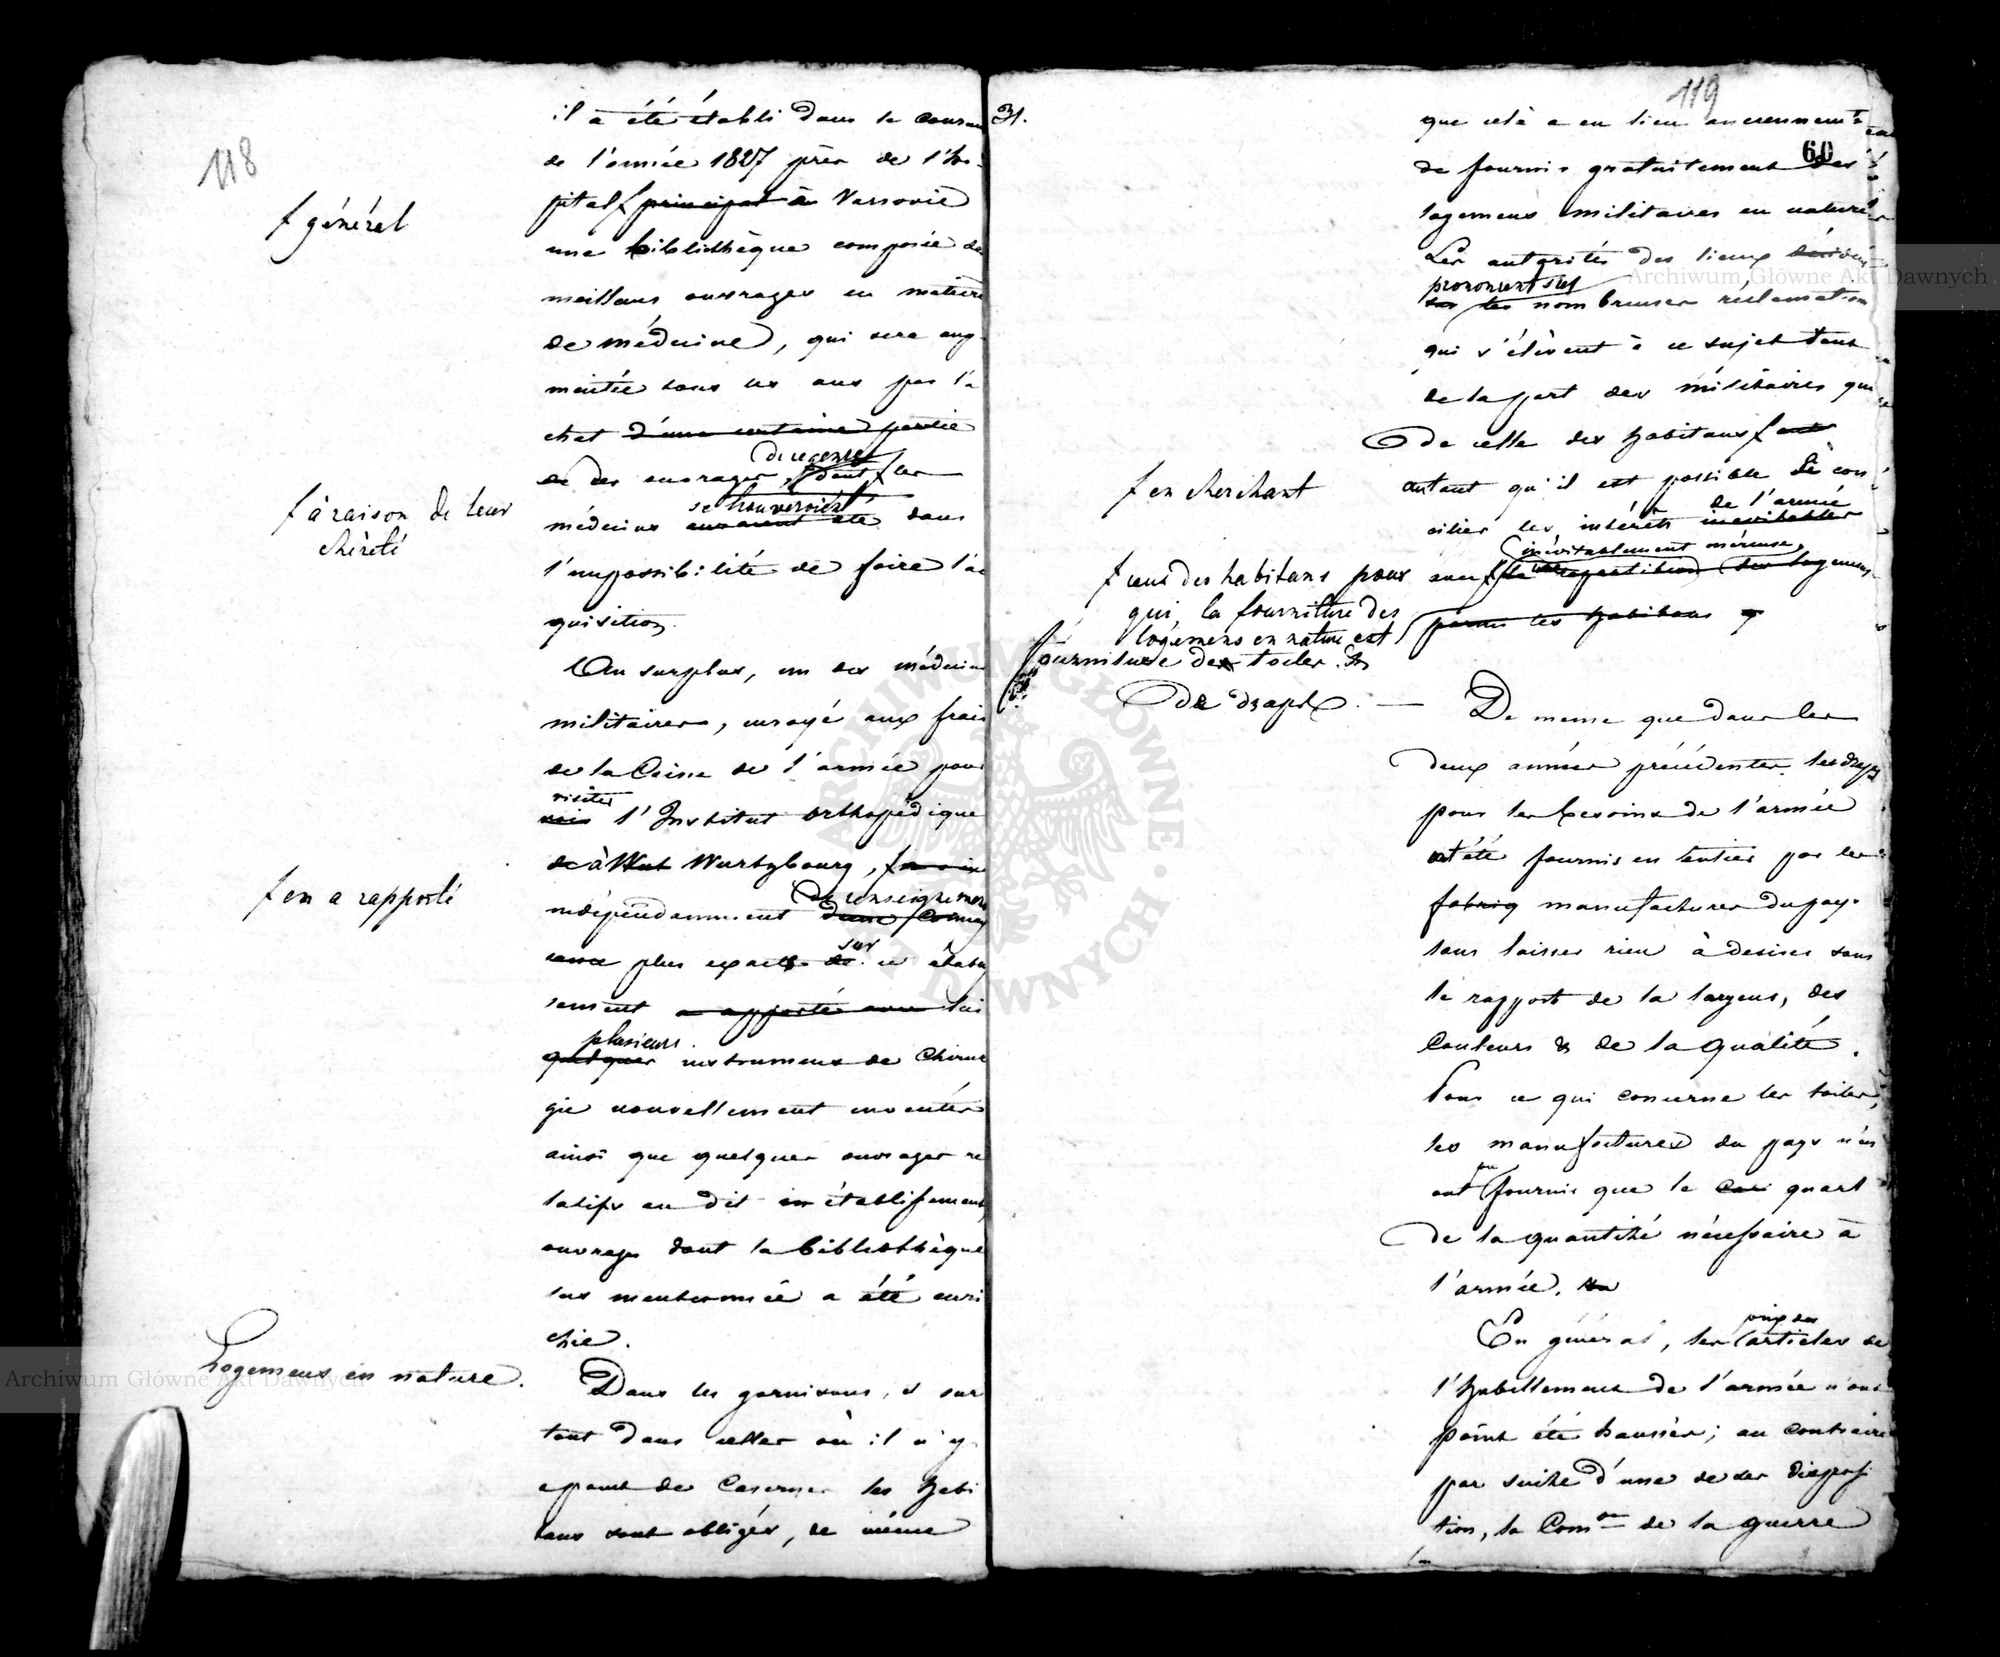 118
il a été établi dans le couran
de l'année 1827 près de l'hô-
pital principal à Varsovie
ƒ général
une bibliothèque composée de
meilleurs ouvrages en matière
de médecine, qui sera aug-
mentée tous les ans par l'a
chat d'une certaine partie
de ce genre
de des ouvrages, dont les
ƒ à raison de leur
chèreté
se trouveroient
médecins auraient été dans
l'impossibilité de faire l'ac
quisition.
Au surplus, un des médecins
militaires, envoyé aux frais
de la Caisse de l'armée pour
visiter
voir l'Institut orthopédique
de à Wurtzbourg,
ƒ en a rapporté
de renseignemens
indépendamment d'une connais
sur
sance plus exacte de ce établis
sement a apporté avec lui
plusieurs
quelques instrumens de Chirur
gie nouvellement inventés
ainsi que quelques ouvrages re
latifs au dit établissement,
ouvrages dont la bibliothèque
sus mentionnée a été enri
chie.
Logemens en nature.
Dans les garnisons, et sur
tout dans celles où il n'y
a point de Casernes les habi
tans sont obligés, de même
31.
119
60
que celà a eu lieu anciennement
de fournir gratuitement des
logemens militaires en nature
Les autorités des lieux
prononcent sur
sur les nombreuses réclamation
qui s'élèvent à ce sujet tant
de la part des militaires que
de celle des habitans
ƒ en cherchant
autant qu'il est possible de con
de l'armée
cilier les intérêts inévitables
inévitablement onéreuse
avec la repartition des logemens
parmi les habitans
ƒ ceux des habitans pour
qui, la fourniture des
logemens en nature est
Fourniture des toiles &
de draps.
De meme que dans les
deux années précédentes les draps
pour les besoins de l'armée
ont été fournis en entier par les
fabriq manufactures du pays
sans laisser rien à desirer sous
le rapport de la largeur, des
Couleurs & de la qualité.
Pour ce qui concerne les toiles,
les manufactures du pays n'en
pu
ont fournir que le quart
de la quantité nécessaire à
l'armée.
prix des
En général, les articles de
l'habillement de l'armée n'ont
point été haussés; au contraire
par suite d'une de ses disposi
tion, la Com.on de la guerre